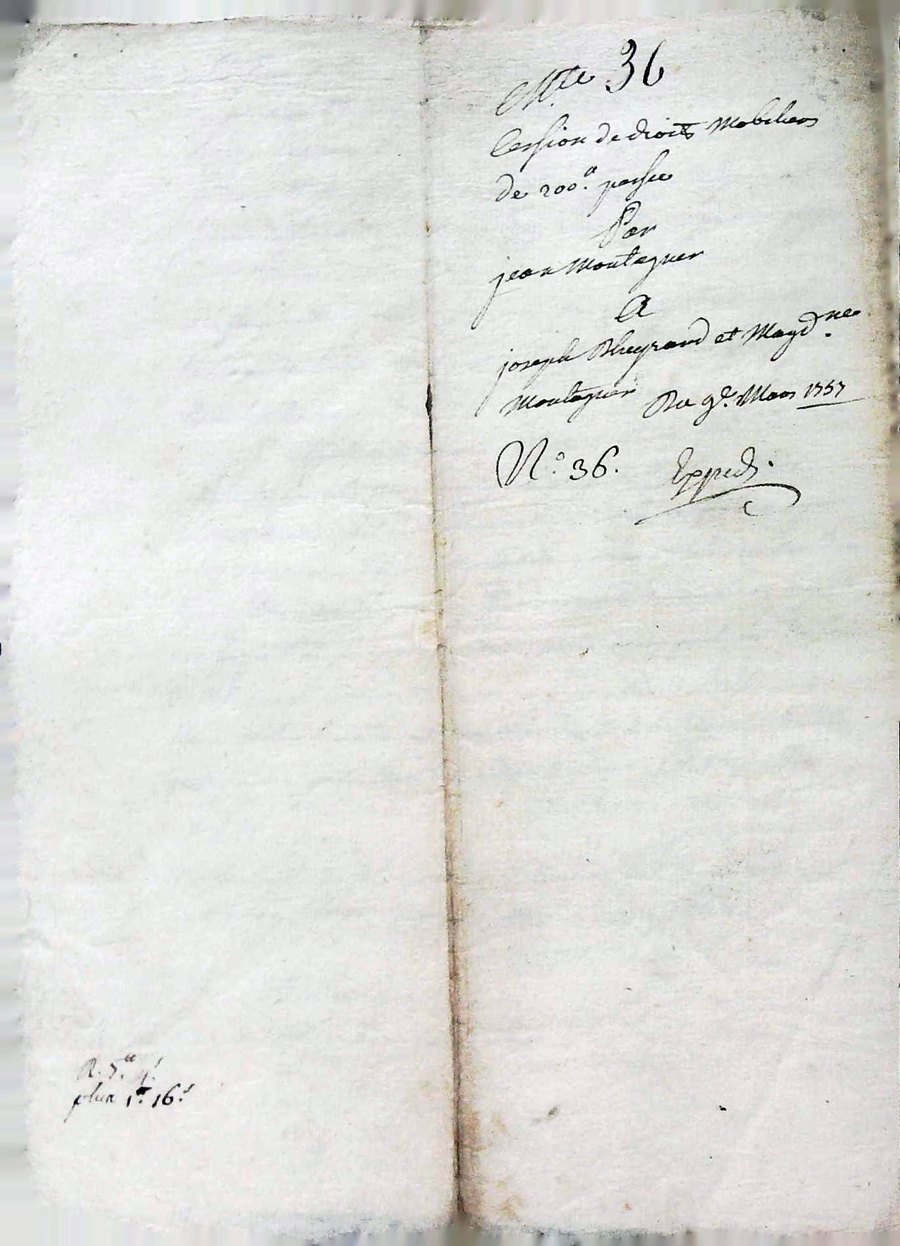 M.te 36
Cession de droits Mobiliers
de 200.tt passée
Par
jean Montagner
A
joseph et Magd.ne
Montagner Du 9.e Mars 1757
N.o 36. Expedi.
R. 5.tt 4.s
plus 1.tt 16.s